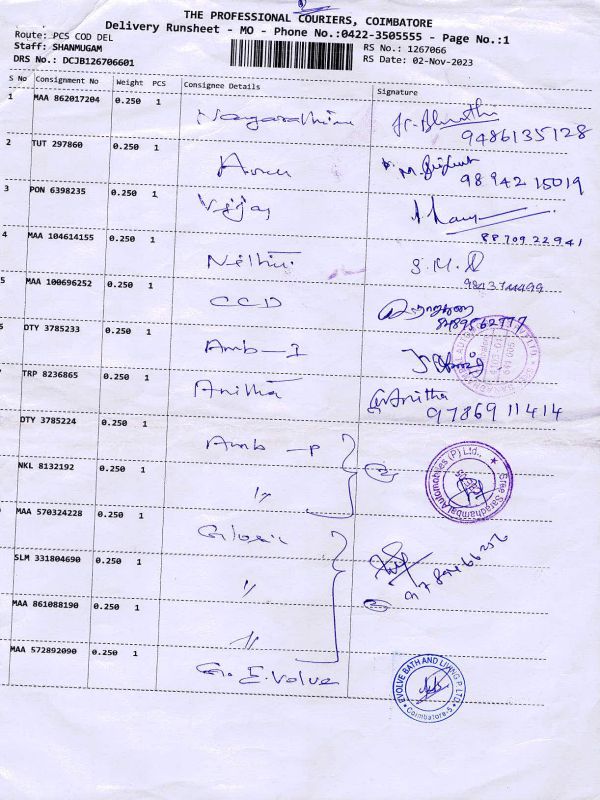 THE PROFESSIONAL COURIERS, COIMBATORE
Delivery Runsheet - MO - Phone No.:0422-3505555 - Page No.:1
Route: PCS COD DEL
Staff: SHANMUGAM
RS No.: 1267066
DRS No.: DCJB126706601
RS Date: 02-Nov-2023
S No Consignment No Weight PCS Consignee Details Signature
1 MAA 862017204 0.250 1
9486135128
2 TUT 297860 0.250 1
98942 15019
3 PON 6398235 0.250 1 Vijay
88709 22941
4 MAA 104614155 0.250 1
S.M.
5 MAA 100696252 0.250 1 CCD
8489562777
6 DTY 3785233 0.250 1 Amb - I
7 TRP 8236865 0.250 1 Anitha Anitha
9786911414
DTY 3785224 0.250 1 Amb - P
NKL 8132192 0.250 1 "
Sree Saradhambal Automobiles (P) Ltd.,
MAA 570324228 0.250 1
SLM 331804690 0.250 1 "
MAA 861088190 0.250 1 "
MAA 572892090 0.250 1 G. E. Volve
EVOLVE BATH AND LIVING P LTD
Coimbatore-5